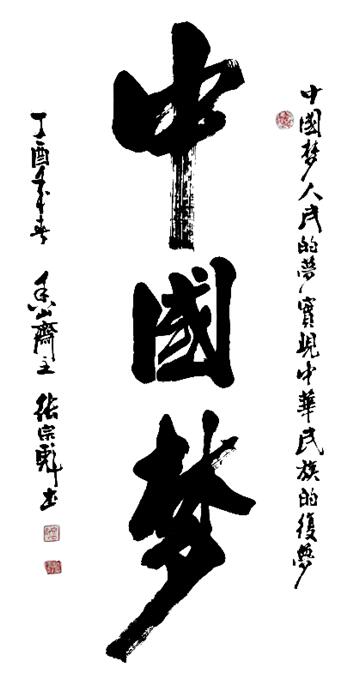 中國梦
中國梦人民的夢實現中華民族的復兴
丁酉年春 香山齋主 張宗彪書